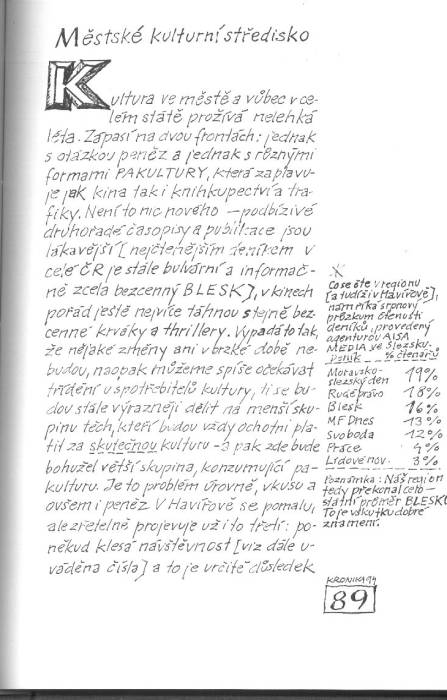 Městské kulturní středisko
Kultura ve městě a vůbec v ce-
lém státě prožívá nelehká
léta. Zápasí na dvou frontách: jednak
s otázkou peněz a jednak s různými
formami PAKULTURY, která zaplavu-
je jak kina tak i knihkupectví a tra-
fiky. Není to nic nového - podbízivé
druhořadé časopisy a publikace jsou
lákavější [nejčtenějším deníkem v
celé ČR je stále bulvární a informač-
ně zcela bezcenný BLESK], v kinech
pořád ještě nejvíce táhnou stejně bez-
cenné krváky a thrillery. Vypadá to tak,
že nějaké změny ani v brzké době ne-
budou, naopak můžeme spíše očekávat
třídění u spotřebitelů kultury, ti se bu-
dou stále výrazněji dělit na menší sku-
pinu těch, kteří budou vždy ochotni pla-
tit za skutečnou kulturu - a pak zde bude
bohužel větší skupina, konzumující pa-
kulturu. Je to problém úrovně, vkusu a
ovšem i peněz. V Havířově se pomalu,
ale zřetelně projevuje už i to třetí: po-
někud klesá návštěvnost [viz dále u-
váděná čísla] a to je určitě důsledek
*
Co se čte v regionu
[a tudíž i v Havířově],
nám říká srpnový
průzkum čtenosti
deníků, provedený
agenturou AISA
MEDIA ve Slezsku.
Deník % čtenářů
Moravsko-
slezský den 19%
Rudé právo 18%
Blesk 16%
MF Dnes 13%
Svoboda 12%
Práce 4%
Lidové nov. 3%
Poznámka: Náš region
tedy překonal celo-
státní průměr BLESKU
To je vskutku dobré
znamení.
KRONIKA 94
89